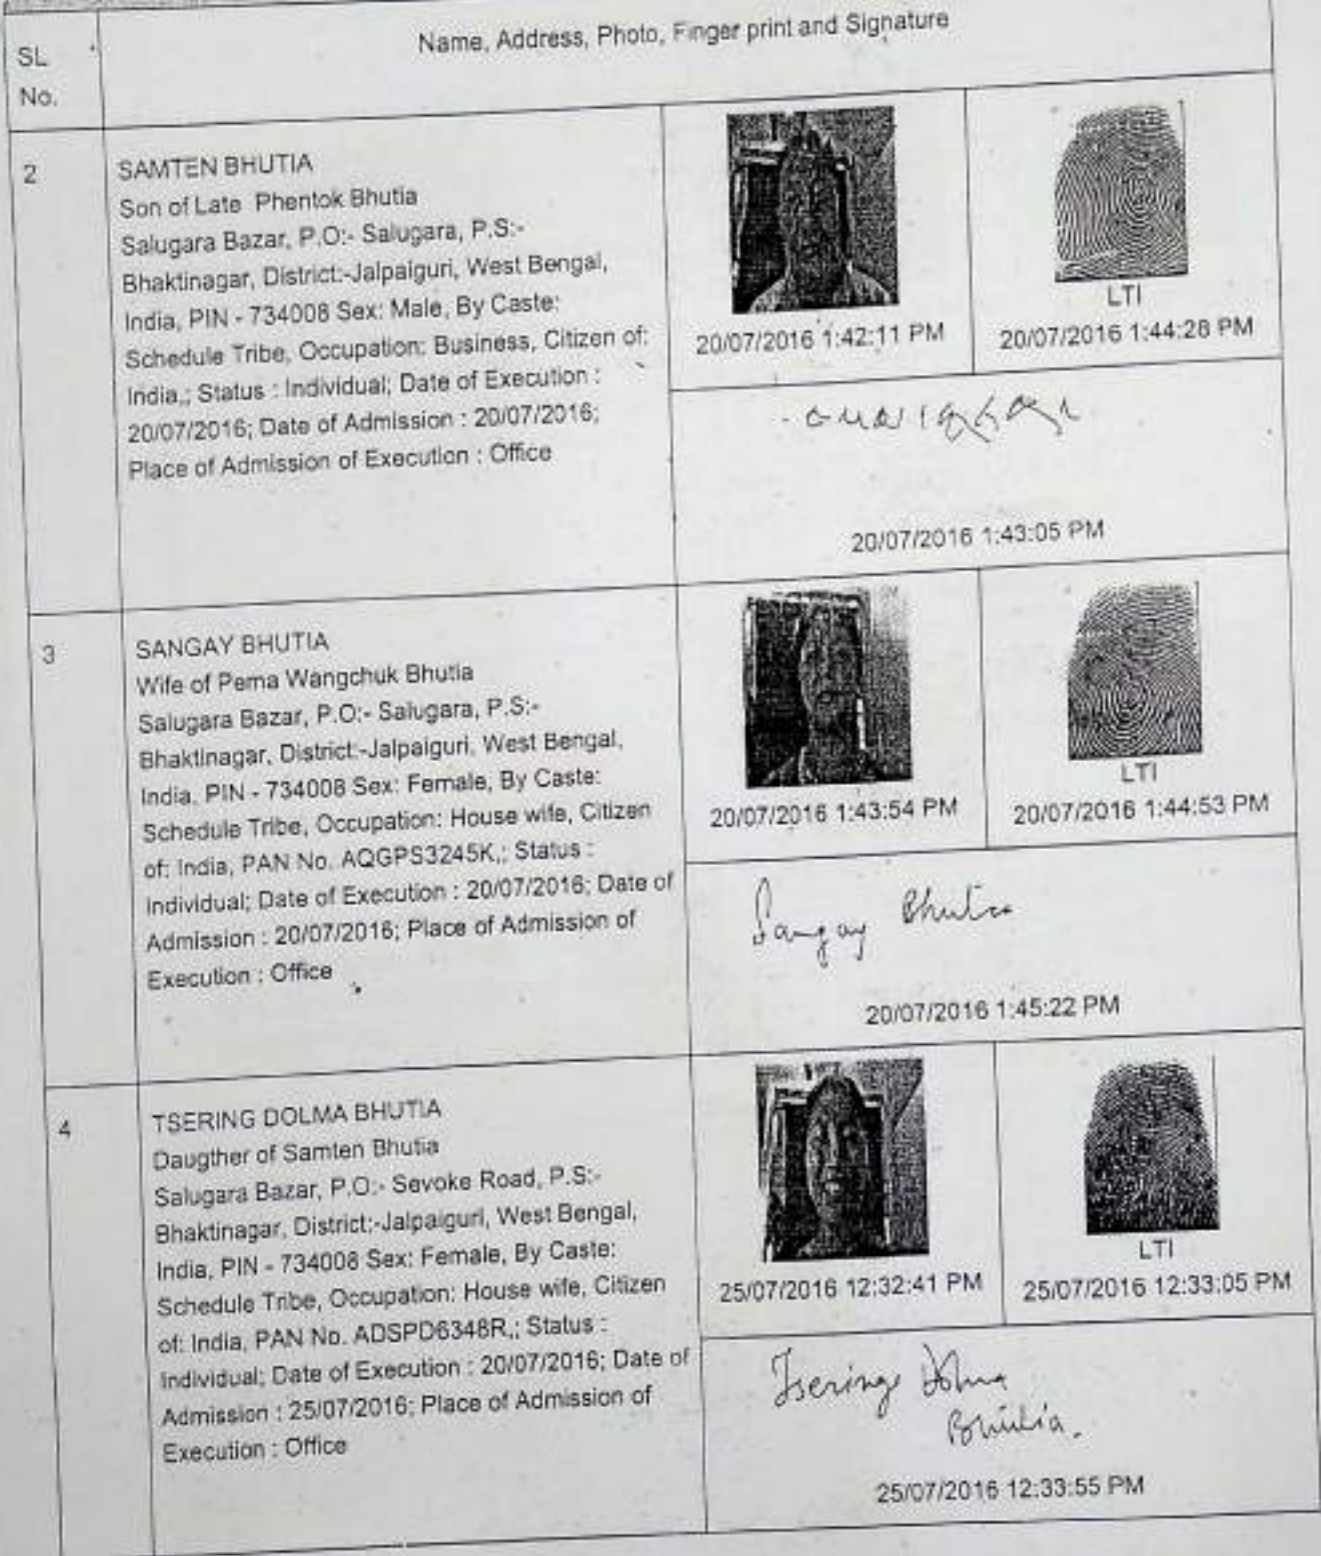 SL
No.
Name, Address, Photo, Finger print and Signature
2
SAMTEN BHUTIA
Son of Late Phentok Bhutia
Salugara Bazar, P.O:- Salugara, P.S:-
Bhaktinagar, District:-Jalpaiguri, West Bengal,
India, PIN - 734008 Sex: Male, By Caste:
Schedule Tribe, Occupation: Business, Citizen of:
India,; Status : Individual; Date of Execution :
20/07/2016; Date of Admission : 20/07/2016;
Place of Admission of Execution : Office
20/07/2016 1:42:11 PM
LTI
20/07/2016 1:44:28 PM
20/07/2016 1:43:05 PM
3
SANGAY BHUTIA
Wife of Pema Wangchuk Bhutia
Salugara Bazar, P.O:- Salugara, P.S:-
Bhaktinagar, District:-Jalpaiguri, West Bengal,
India, PIN - 734008 Sex: Female, By Caste:
Schedule Tribe, Occupation: House wife, Citizen
of: India, PAN No. AQGPS3245K,; Status :
Individual; Date of Execution : 20/07/2016; Date of
Admission : 20/07/2016; Place of Admission of
Execution : Office
20/07/2016 1:43:54 PM
LTI
20/07/2016 1:44:53 PM
Sangay Bhutia
20/07/2016 1:45:22 PM
4
TSERING DOLMA BHUTIA
Daugther of Samten Bhutia
Salugara Bazar, P.O:- Sevoke Road, P.S:-
Bhaktinagar, District:-Jalpaiguri, West Bengal,
India, PIN - 734008 Sex: Female, By Caste:
Schedule Tribe, Occupation: House wife, Citizen
of: India, PAN No. ADSPD6348R,; Status :
Individual; Date of Execution : 20/07/2016; Date of
Admission : 25/07/2016; Place of Admission of
Execution : Office
25/07/2016 12:32:41 PM
LTI
25/07/2016 12:33:05 PM
Tsering Dolma
Bhutia.
25/07/2016 12:33:55 PM